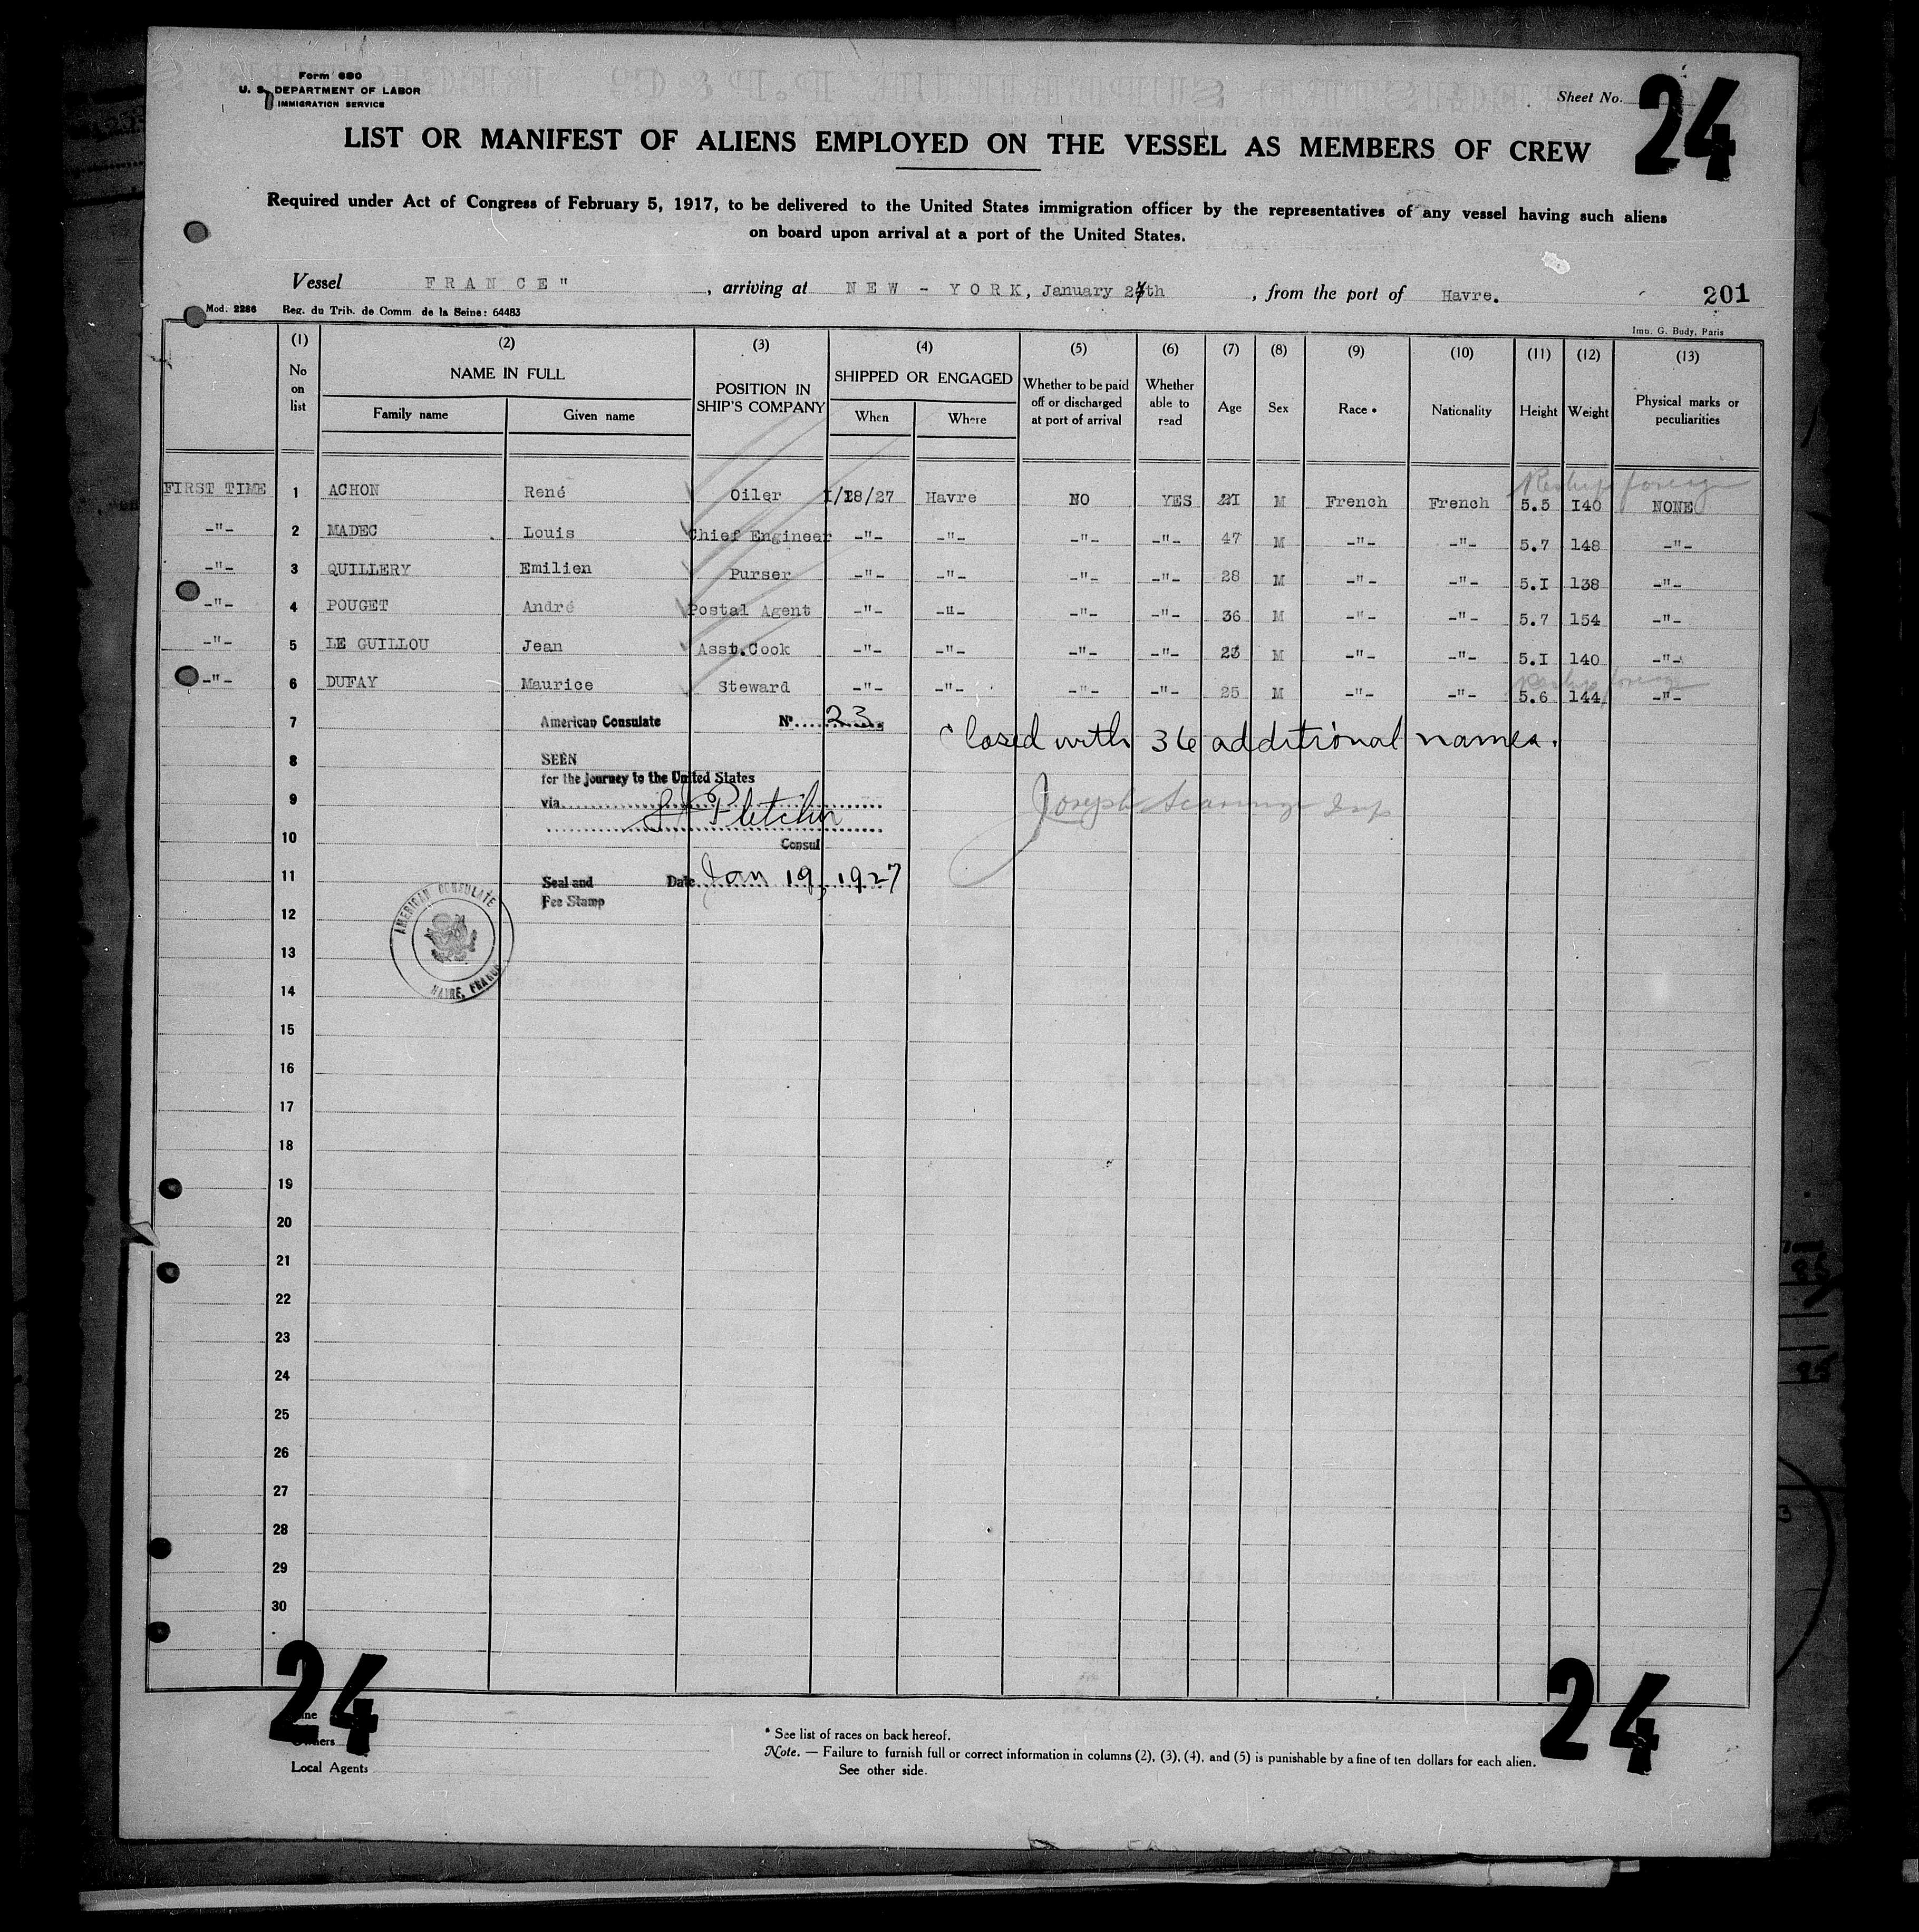 Form 680
U. S. DEPARTMENT OF LABOR
IMMIGRATION SERVICE
Sheet No. 24
LIST OR MANIFEST OF ALIENS EMPLOYED ON THE VESSEL AS MEMBERS OF CREW
Required under Act of Congress of February 5, 1917, to be delivered to the United States immigration officer by the representatives of any vessel having such aliens
on board upon arrival at a port of the United States.
Vessel FRANCE" , arriving at NEW - YORK, January 24th , from the port of Havre.
201
Mod. 2286 Reg. du Trib. de Comm de la Seine: 64483
Imp. G. Budy, Paris
(1) (2) (3) (4) (5) (6) (7) (8) (9) (10) (11) (12) (13)
No on list NAME IN FULL Family name Given name POSITION IN SHIP'S COMPANY SHIPPED OR ENGAGED When Where Whether to be paid off or discharged at port of arrival Whether able to read Age Sex Race * Nationality Height Weight Physical marks or peculiarities
Reships foreign
FIRST TIME 1 ACHON René Oiler 1/18/27 Havre NO YES 21 M French French 5.5 I40 NONE
-"- 2 MADEC Louis Chief Engineer -"- -"- -"- -"- 47 M -"- -"- 5.7 148 -"-
-"- 3 QUILLERY Emilien Purser -"- -"- -"- -"- 28 M -"- -"- 5.I 138 -"-
-"- 4 POUGET André Postal Agent -"- -"- -"- -"- 36 M -"- -"- 5.7 154 -"-
-"- 5 LE GUILLOU Jean Asst.Cook -"- -"- -"- -"- 23 M -"- -"- 5.I 140 -"-
Reships foreign
-"- 6 DUFAY Maurice Steward -"- -"- -"- -"- 25 M -"- -"- 5.6 144 -"-
7 American Consulate No. 23
Closed with 36 additional names.
8 SEEN
for the journey to the United States
9 via
Joseph Insp
10
Consul
11 Seal and Date Jan 19, 1927
Fee Stamp
12
AMERICAN CONSULATE
HAVRE, FRANCE
13
14
15
16
17
18
19
20
21
22
23
24
25
26
27
28
29
30
24
24
Owners
Local Agents
* See list of races on back hereof.
Note. — Failure to furnish full or correct information in columns (2), (3), (4), and (5) is punishable by a fine of ten dollars for each alien.
See other side.